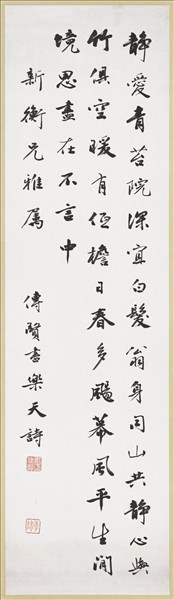 静愛青苔院深宜白髮翁身同山共静心與
竹俱空暖有低檐日春多颺幕風平生閒
境思盡在不言中
新衡兄雅屬
傳賢書樂天詩